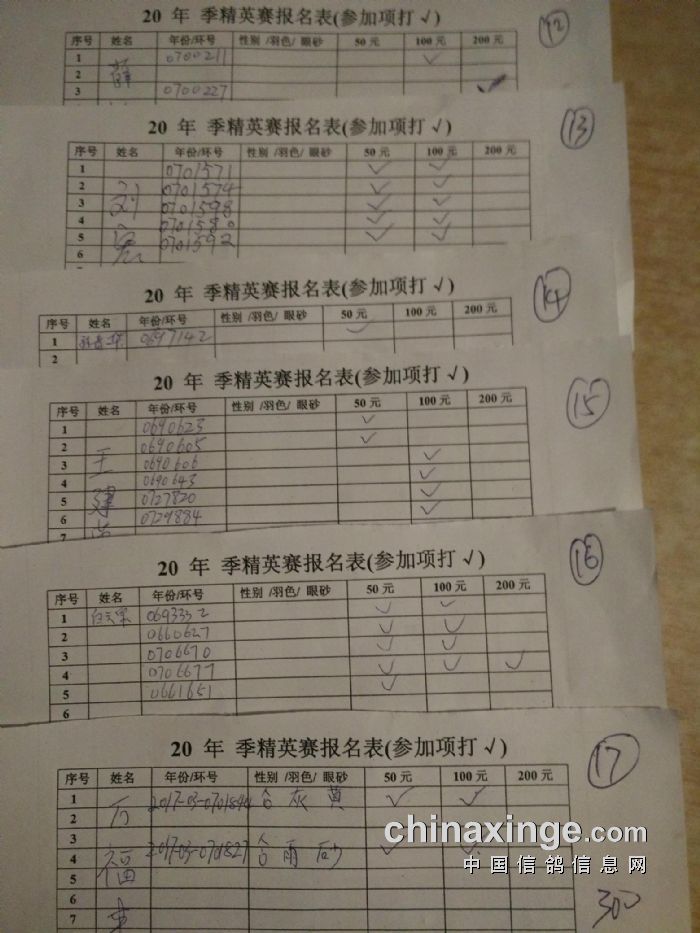 20 年 季精英赛报名表(参加项打 √) 12
序号 姓名 年份/环号 性别 /羽色/ 眼砂 50 元 100 元 200 元
1 0700211 ✓
2 薛
3 0700227 ✓
20 年 季精英赛报名表(参加项打 √) 13
序号 姓名 年份/环号 性别 /羽色/ 眼砂 50 元 100 元 200 元
1 0701571 ✓ ✓
2 刘 0701574 ✓ ✓
3 0701598 ✓ ✓
4 0701580 ✓ ✓
5 宏 0701592 ✓ ✓
6
20 年 季精英赛报名表(参加项打 √) 14
序号 姓名 年份/环号 性别 /羽色/ 眼砂 50 元 100 元 200 元
1 0697142 ✓
2
20 年 季精英赛报名表(参加项打 √) 15
序号 姓名 年份/环号 性别 /羽色/ 眼砂 50 元 100 元 200 元
1 0690623 ✓
2 0690605 ✓
3 王 0690606 ✓
4 0690643 ✓
5 建 0727820 ✓
6 0729884 ✓
7
20 年 季精英赛报名表(参加项打 √) 16
序号 姓名 年份/环号 性别 /羽色/ 眼砂 50 元 100 元 200 元
1 0693352 ✓ ✓
2 0660627 ✓ ✓
3 0706670 ✓ ✓
4 0706677 ✓ ✓ ✓
5 0661651 ✓
6
20 年 季精英赛报名表(参加项打 √) 17
序号 姓名 年份/环号 性别 /羽色/ 眼砂 50 元 100 元 200 元
1 2017-03-0701844 灰 黄 ✓ ✓
2
3
4 福 2017-03-0701827 雨 砂 ✓ ✓
5
6
7 300
chinaxinge.com
中国信鸽信息网